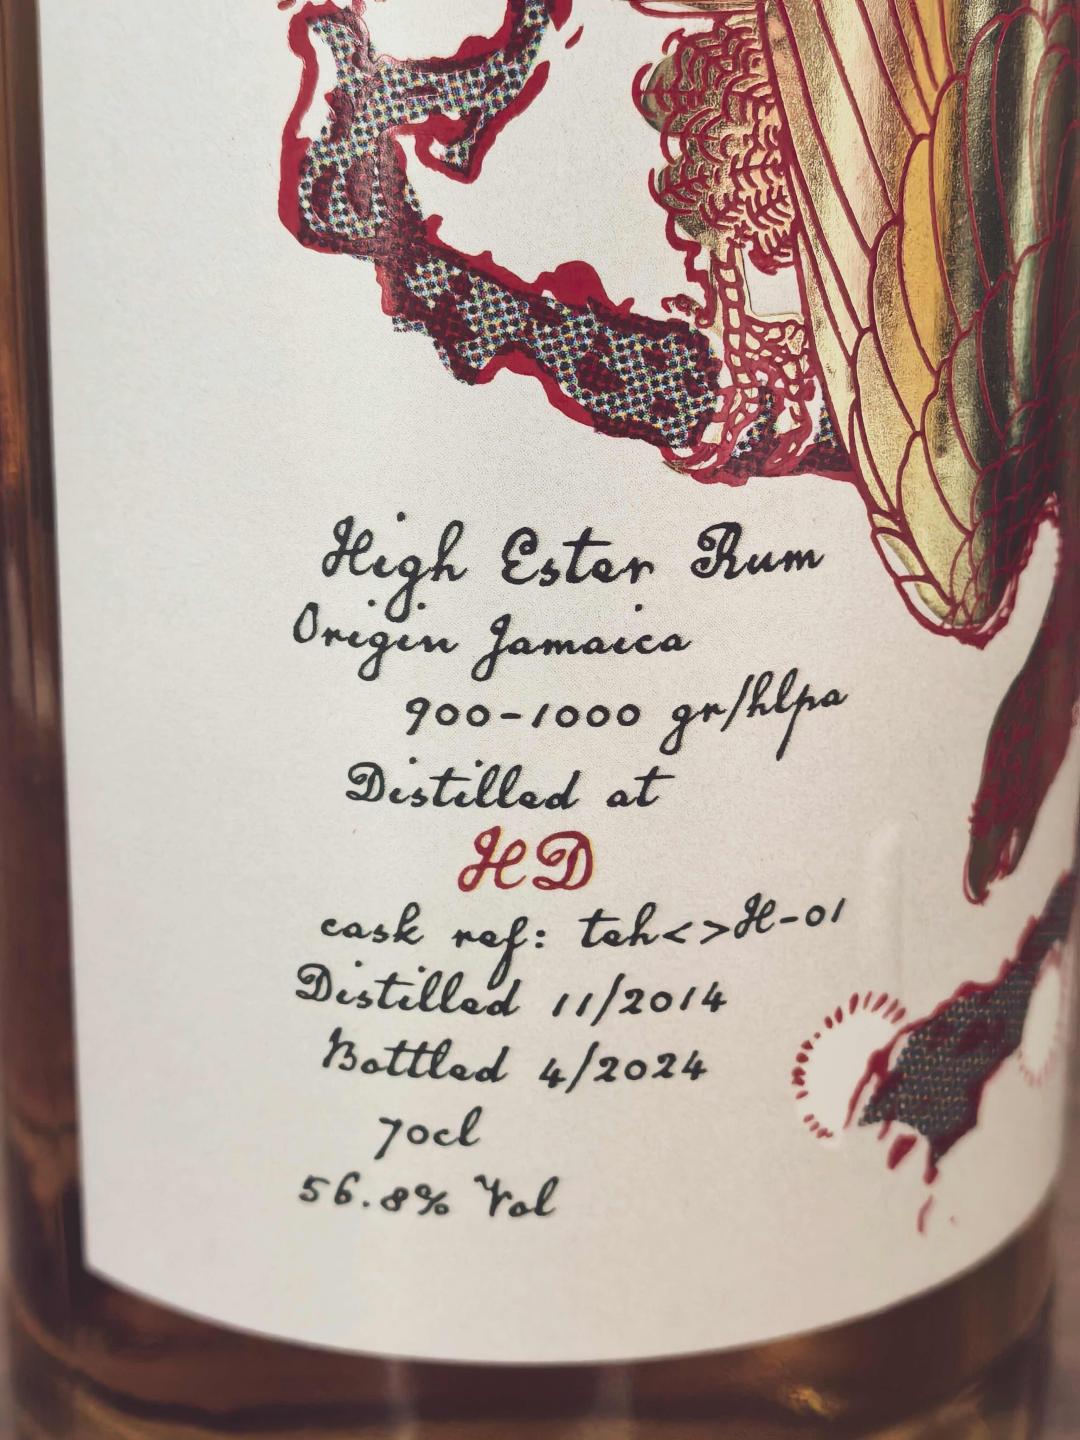 High Ester Rum
Origin Jamaica
900-1000 gr/hlpa
Distilled at
HD
cask ref: teh<>H-01
Distilled 11/2014
Bottled 4/2024
70cl
56.8% Vol